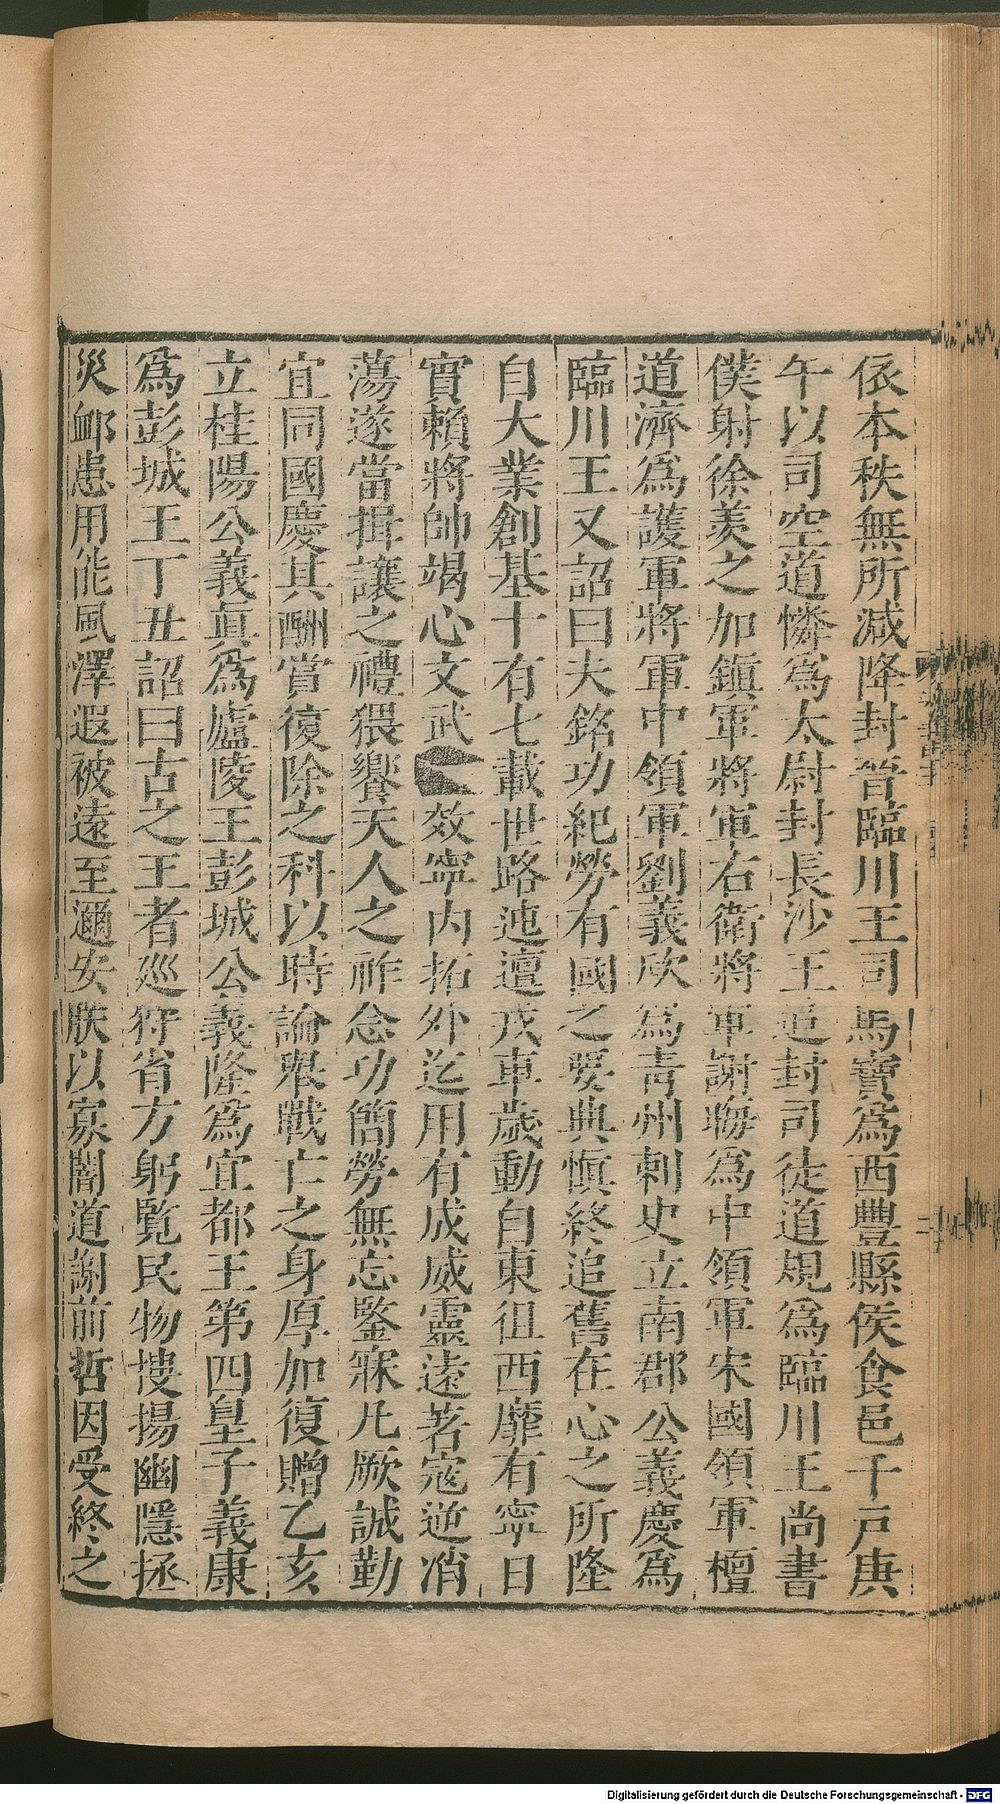 依本秩無所減降封晉臨川王司馬寶爲西豐縣侯食邑千戸庚
午以司空道憐爲太尉封長沙王追封司徒道規爲臨川王尚書
僕射徐羨之加鎭軍將軍右衛將軍謝晦爲中領軍宋國領軍檀
道濟爲護軍將軍中領軍劉義欣爲青州刺史立南郡公義慶爲
臨川王又詔曰夫銘功紀勞有國之要典愼終追舊在心之所隆
自大業創基十有七載世路迍邅戎車歲動自東徂西靡有寧日
實賴將帥竭心文武效寧內拓外迄用有成威靈遠著寇逆消
蕩遂當揖讓之禮猥饗天人之祚念功簡勞無忘鑒寐凡厥誠勤
宜同國慶其酬賞復除之科以時論舉戰亡之身厚加復贈乙亥
立桂陽公義眞爲廬陵王彭城公義隆爲宜都王第四皇子義康
爲彭城王丁丑詔曰古之王者廵狩省方躬覽民物搜揚幽隱拯
災卹患用能風澤遐被遠至邇安朕以寡闇道謝前哲因受終之
Digitalisierung gefördert durch die Deutsche Forschungsgemeinschaft - DFG